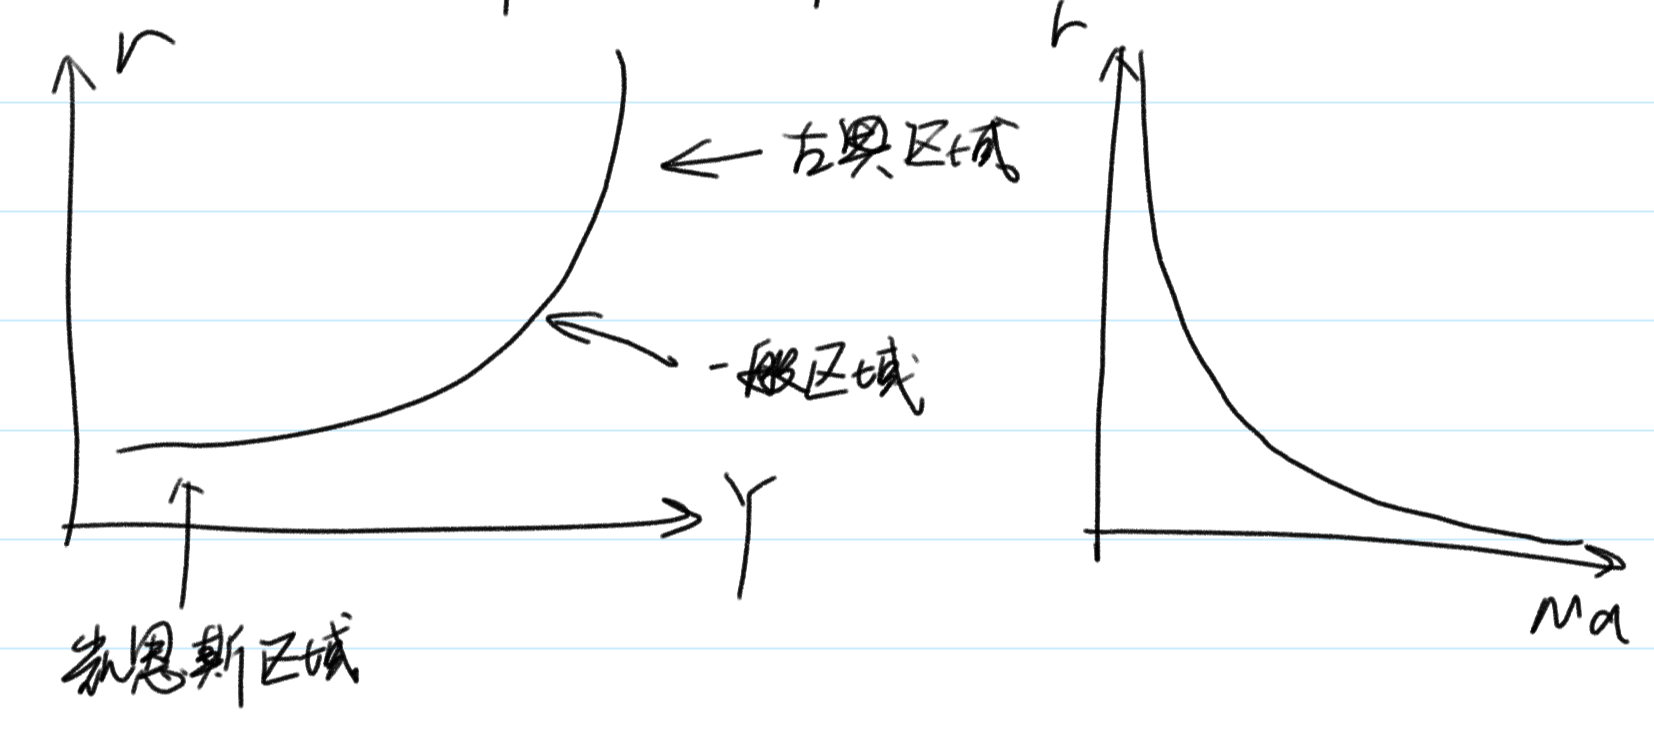 r
古典区域
一般区域
Y
凯恩斯区域
r
Md